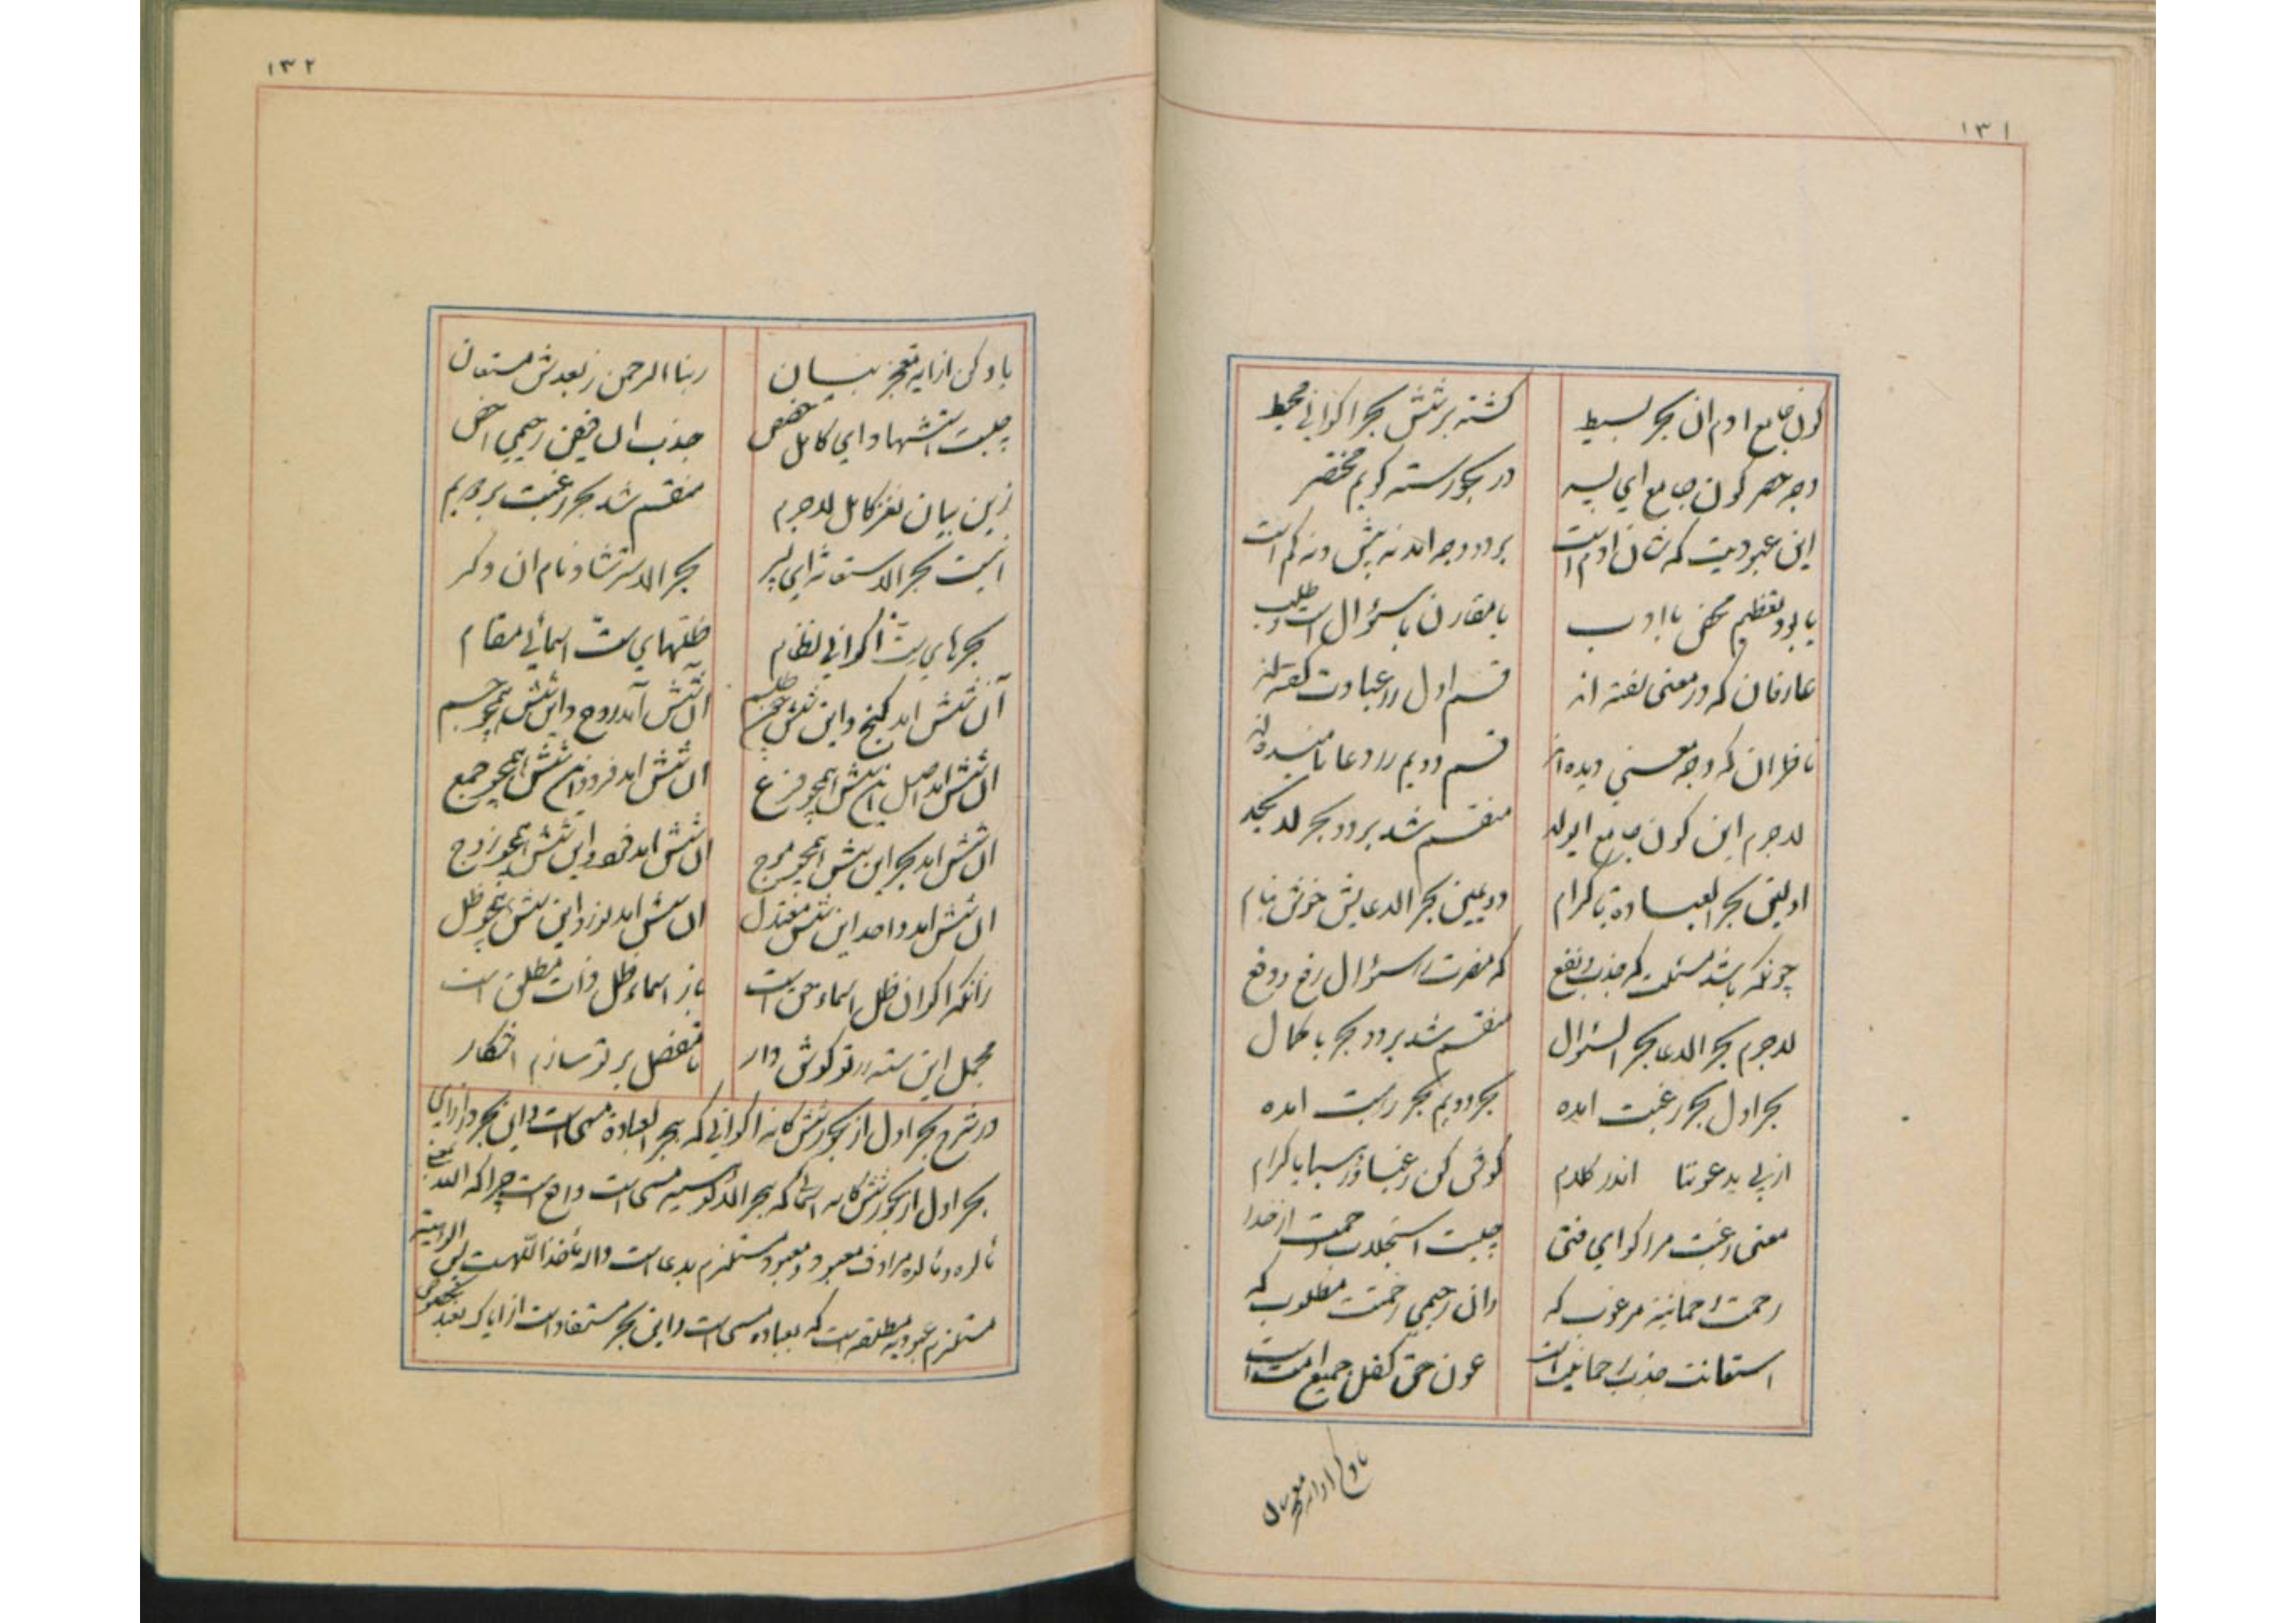 ۱۳۱
کون جامع ادم ان بحر بسیط گشته بر شش بحر اکوانی محیط
وجه حصر کون جامع ای پسر در بحور سته گویم مختصر
این عبودیت که شان ادم است بر دو وجه امد نه بیش و نه کم است
یا بود تعظیم محض با ادب یا مقارن با سؤال است و طلب
عارفان که در معنی سفته اند قسم اول را عبادت گفته اند
ناظران که وجه معنی دیده اند قسم دویم را دعا نامیده اند
لاجرم این کون جامع ایولد منقسم شد بر دو بحر لا بحد
اولین بحر العباده با کرام دویمین بحر الدعایش خوش بنام
چونکه باشد مسئلت که جذب نفع که مضرت را سؤال رفع و دفع
لاجرم بحر الدعا بحر السئوال منقسم شد بر دو بحر با کمال
بحر اول بحر رغبت امده بحر دویم بحر رهبت امده
از پی یدعوننا اندر کلام گوش کن رغبا و رهبا با کرام
معنی رغبت مرا گو ای فتی چیست استجلاب رحمت از خدا
رحمت رحمانیه مرغوب که وان رحیمی رحمت مطلوب که
استعانت جذب رحمانیت است عون حق کفل جمیع امت است
یاد کن از ایه معجز بیان
۱۳۲
یاد کن از ایه معجز بیان ربنا الرحمن ز بعدش مستعان
چیست استرشاد ای کامل جذب ان فیض رحیمی اخص
زین بیان نغز کامل لاجرم منقسم شد بحر رغبت بر دو یم
انیت بحر الاستعانه ای پسر بحر الاسترشاد نام ان دگر
بحرهای ستّه اکوانی نظام ظلّهای ستّه اسمائی مقام
آن شش امد گنج و این شش چون طلسم ان شش آمد روح و این شش همچو جسم
ان شش امد اصل این شش همچو فرع ان شش امد فرد و این شش همچو جمع
ان شش امد بحر این شش همچو موج ان شش امد فرد و این شش همچو زوج
ان شش امد واحد این شش معتدل ان شش امد نور و این شش همچو ظل
زانکه اکوان ظل اسماء حق است باز اسماء ظل ذات مطلق است
مجمل این سته را تو گوش دار تا مفصل بر تو سازم اشکار
در شرح بحر اول از بحور ششگانه اکوانی که بحر العباده مسمی است و این بحر در ازای
بحر اول از بحور ششگانه اسمائی که بحر الالوهیه مسمی است واقع است چرا که اله بمعنی
مألوه و مألوه مرادف معبود و معبود مستلزم عابد است و اله مأخذ اللهست پس الوهیته
مستلزم عبودیه مطلقه است که بعباده مسمی است و این بحر مستفاد است از ایاک نعبد